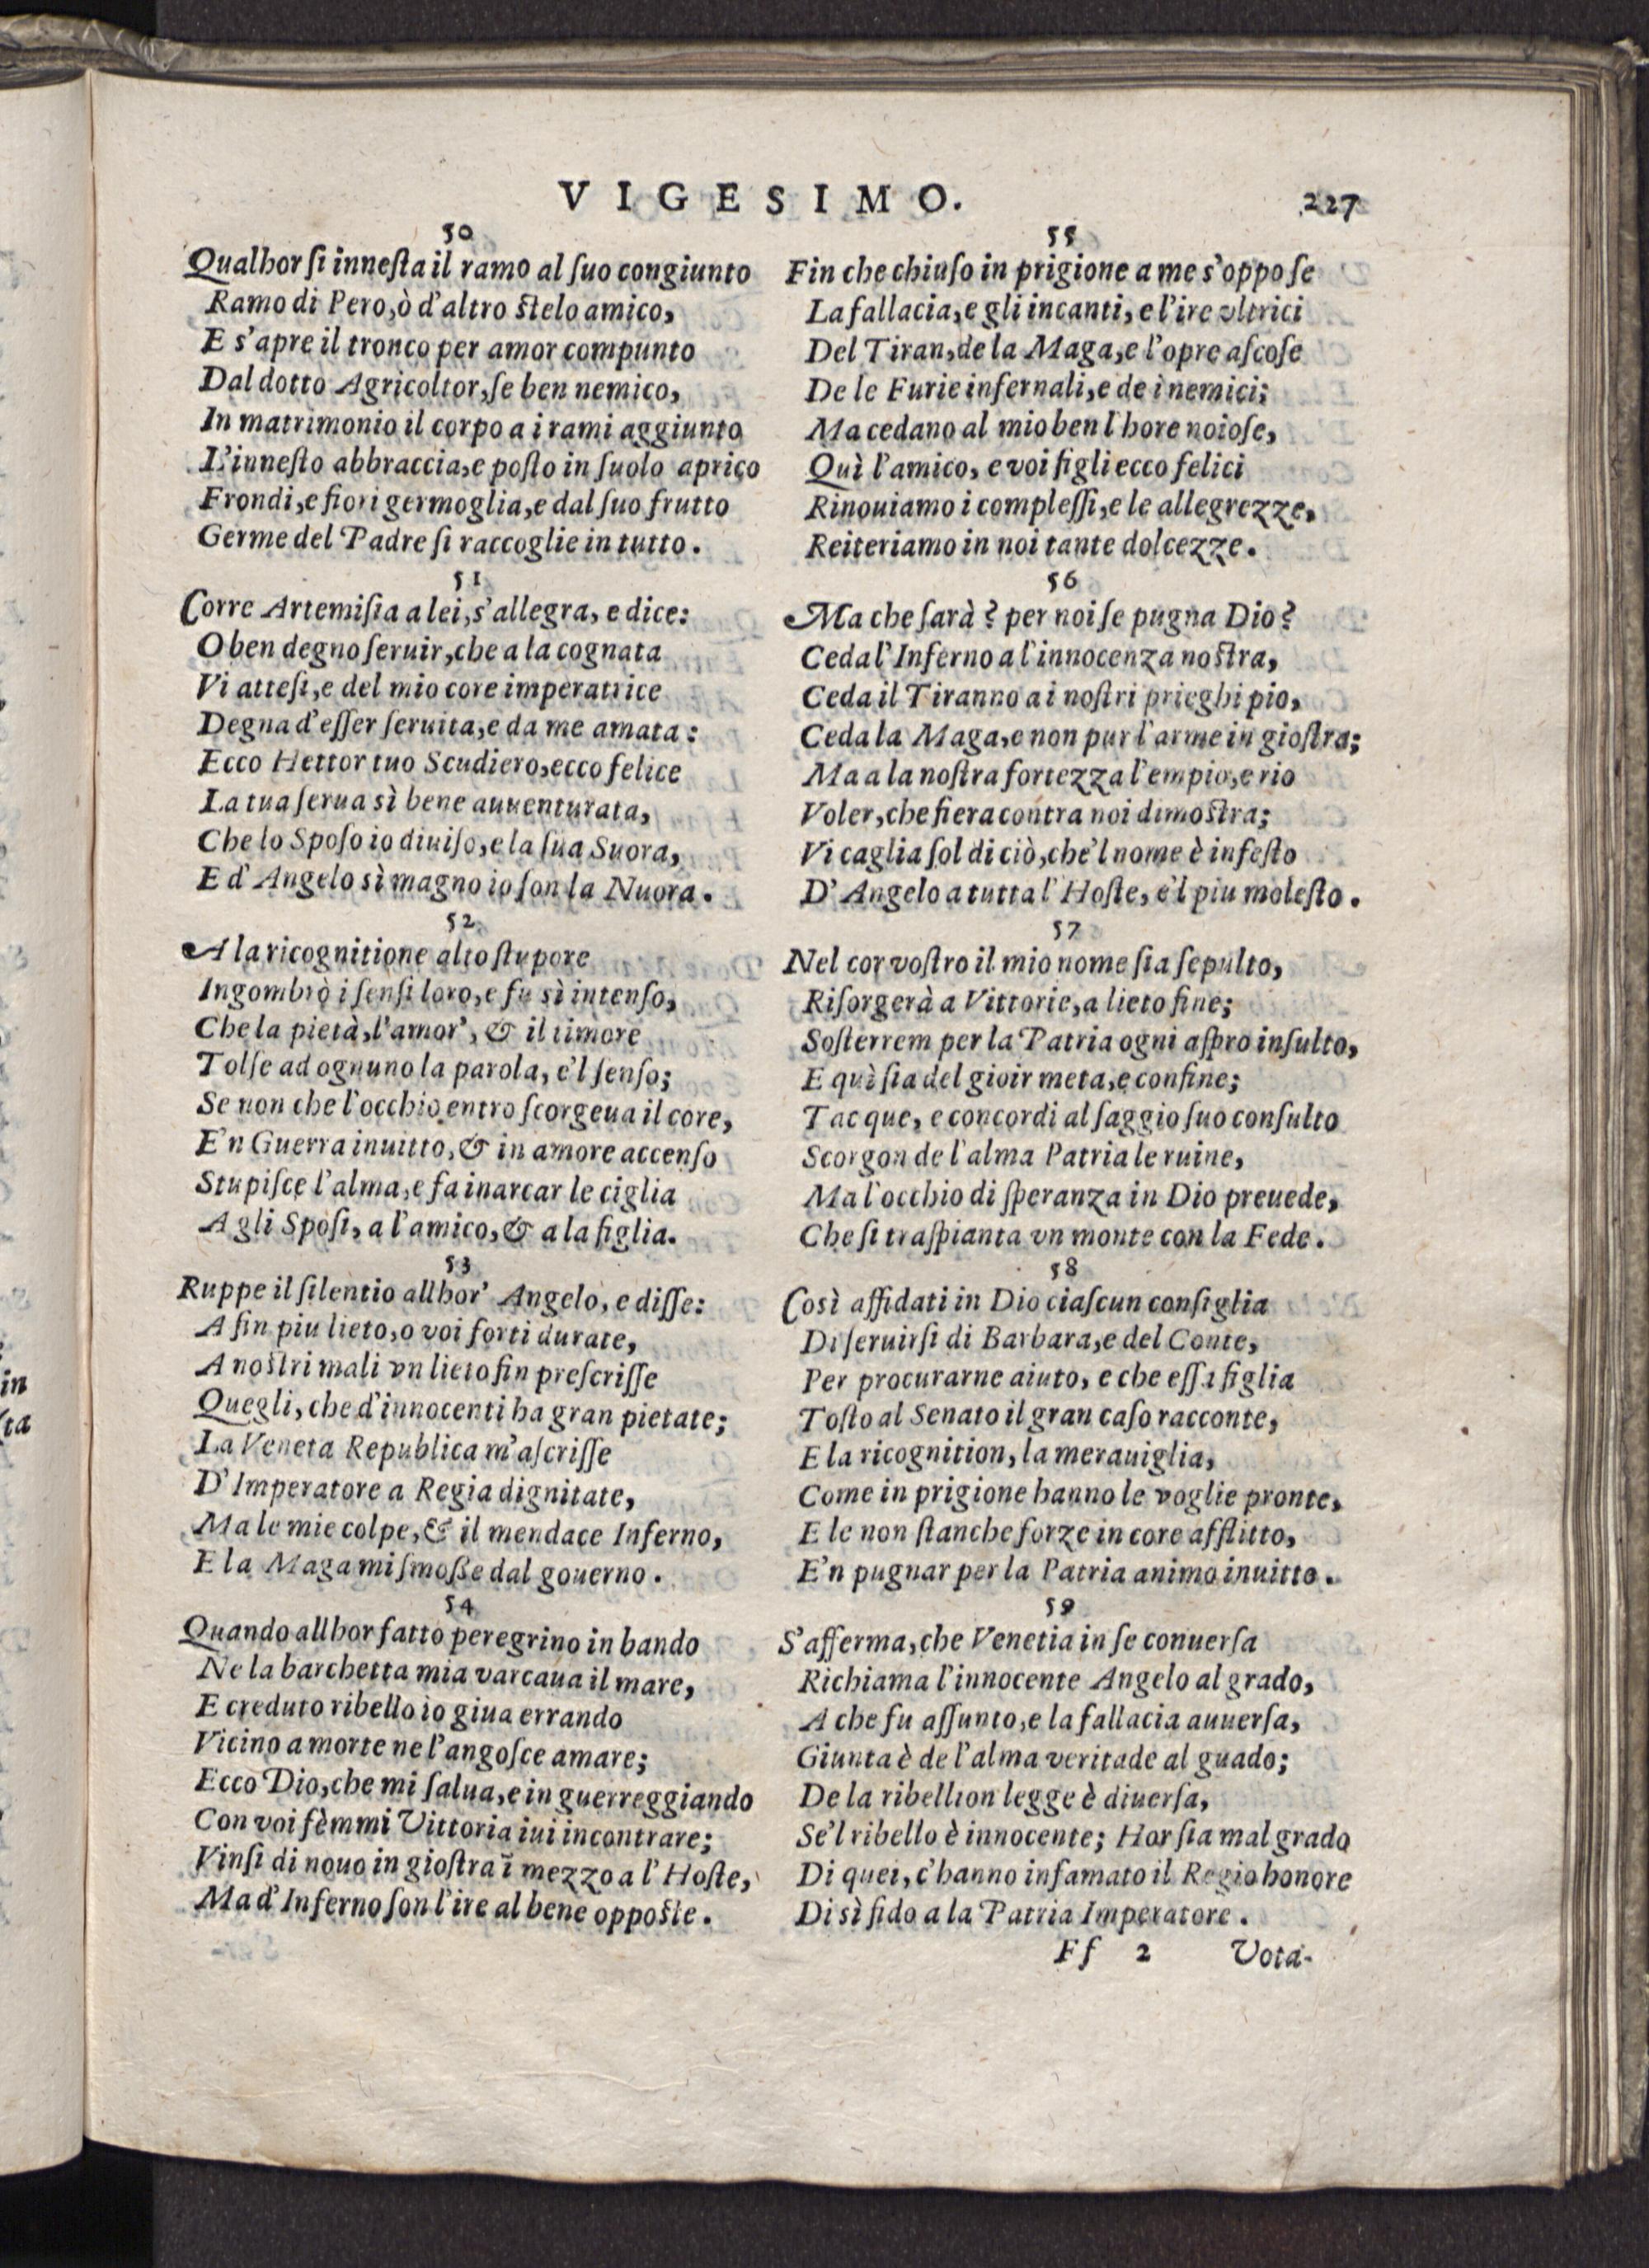 VIGESIMO. 227
50
Qualhor ſi inneſta il ramo al ſuo congiunto
Ramo di Pero, ò d'altro ſtelo amico,
E s'apre il tronco per amor compunto
Dal dotto Agricoltor, ſe ben nemico,
In matrimonio il corpo a i rami aggiunto
L'inneſto abbraccia, e poſto in ſuolo aprico
Frondi, e fiori germoglia, e dal ſuo frutto
Germe del Padre ſi raccoglie in tutto.
51
Corre Artemiſia a lei, s'allegra, e dice:
O ben degno ſeruir, che a la cognata
Vi atteſi, e del mio core imperatrice
Degna d'eſſer ſeruita, e da me amata:
Ecco Hettor tuo Scudiero, ecco felice
La tua ſerua sì bene auuenturata,
Che lo Spoſo io diuiſo, e la ſua Suora,
E d'Angelo sì magno io ſon la Nuora.
52
A la ricognitione alto ſtupore
Ingombrò i ſenſi loro, e fu sì intenſo,
Che la pietà, l'amor', & il timore
Tolſe ad ognuno la parola, e'l ſenſo;
Se non che l'occhio entro ſcorgeua il core,
E'n Guerra inuitto, & in amore accenſo
Stupiſce l'alma, e fa inarcar le ciglia
A gli Spoſi, a l'amico, & a la figlia.
53
Ruppe il ſilentio allhor' Angelo, e diſſe:
A fin piu lieto, o voi forti durate,
A noſtri mali vn lieto fin preſcriſſe
Quegli, che d'innocenti ha gran pietate;
La Veneta Republica m'aſcriſſe
D'Imperatore a Regia dignitate,
Ma le mie colpe, & il mendace Inferno,
E la Maga mi ſmoſſe dal gouerno.
54
Quando allhor fatto peregrino in bando
Ne la barchetta mia varcaua il mare,
E creduto ribello io giua errando
Vicino a morte ne l'angoſce amare;
Ecco Dio, che mi ſalua, e in guerreggiando
Con voi fèmmi Vittoria iui incontrare;
Vinſi di nouo in gioſtra ī mezzo a l'Hoſte,
Ma d'Inferno ſon l'ire al bene oppoſte.
55
Fin che chiuſo in prigione a me s'oppoſe
La fallacia, e gli incanti, e l'ire vltrici
Del Tiran, de la Maga, e l'opre aſcoſe
De le Furie infernali, e de i nemici;
Ma cedano al mio ben l'hore noioſe,
Quì l'amico, e voi figli ecco felici
Rinouiamo i compleſſi, e le allegrezze,
Reiteriamo in noi tante dolcezze.
56
Ma che ſarà? per noi ſe pugna Dio?
Ceda l'Inferno a l'innocenza noſtra,
Ceda il Tiranno a i noſtri prieghi pio,
Ceda la Maga, e non pur l'arme in gioſtra;
Ma a la noſtra fortezza l'empio, e rio
Voler, che fiera contra noi dimoſtra;
Vi caglia ſol di ciò, che'l nome è infeſto
D'Angelo a tutta l'Hoſte, e'l piu moleſto.
57
Nel cor voſtro il mio nome ſia ſepulto,
Riſorgerà a Vittorie, a lieto fine;
Soſterrem per la Patria ogni aſpro inſulto,
E quì ſia del gioir meta, e confine;
Tacque, e concordi al ſaggio ſuo conſulto
Scorgon de l'alma Patria le ruine,
Ma l'occhio di ſperanza in Dio preuede,
Che ſi traſpianta vn monte con la Fede.
58
Così affidati in Dio ciaſcun conſiglia
Di ſeruirſi di Barbara, e del Conte,
Per procurarne aiuto, e che eſſa figlia
Toſto al Senato il gran caſo racconte,
E la ricognition, la merauiglia,
Come in prigione hanno le voglie pronte,
E le non ſtanche forze in core afflitto,
E'n pugnar per la Patria animo inuitto.
59
S'afferma, che Venetia in ſe conuerſa
Richiama l'innocente Angelo al grado,
A che fu aſſunto, e la fallacia auuerſa,
Giunta è de l'alma veritade al guado;
De la ribellion legge è diuerſa,
Se'l ribello è innocente; Hor ſia mal grado
Di quei, c'hanno infamato il Regio honore
Di sì fido a la Patria Imperatore.
Ff 2 Vota-
in
ta